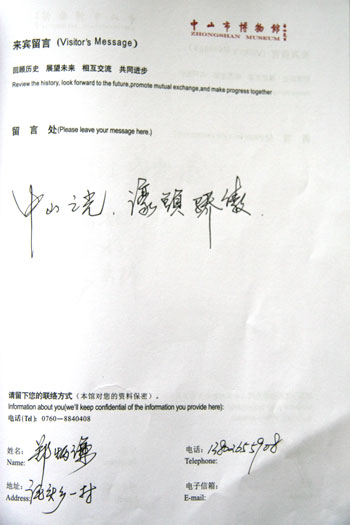 中山市博物館
ZHONGSHAN MUSEUM
来宾留言（Visitor's Message）
回顾历史 展望未来 相互交流 共同进步
Review the history, look forward to the future,promote mutual exchange,and make progress together
留 言 处(Please leave your message here.)
中山之光，濠頭驕傲.
请留下您的联络方式（本馆对您的资料保密）。
Information about you(we'll keep confidential of the information you provide here):
电话(Tel): 0760—8840408
姓名: 郑
电话:
Name:
Telephone:
地址: 一村
电子信箱:
Address:
E-mail: